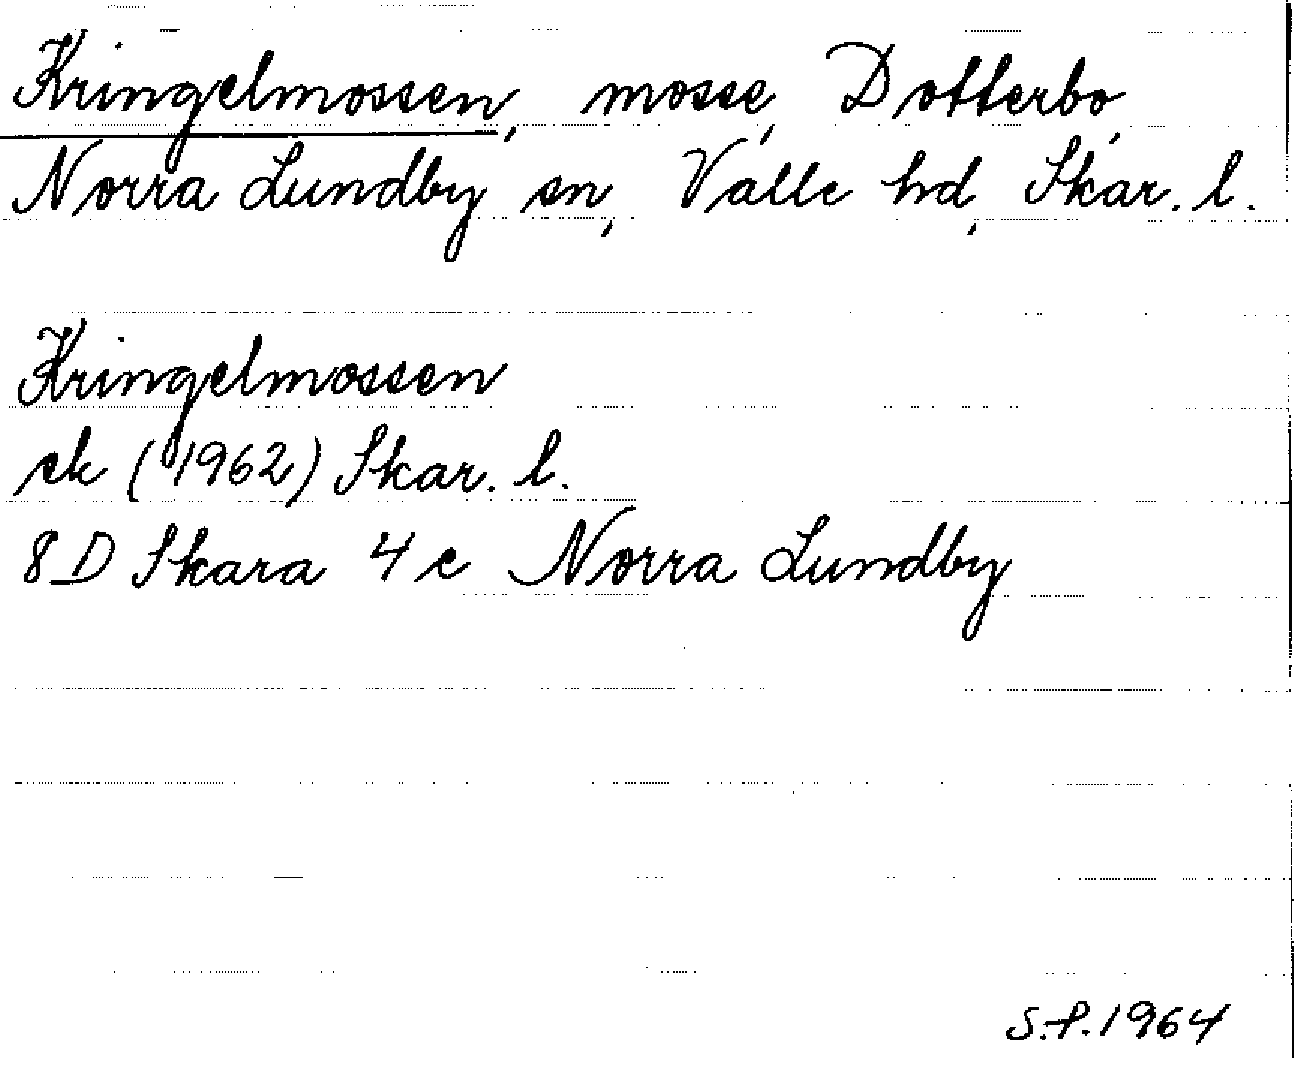 Kringelmossen, mosse, Dotterbo,
Norra Lundby sn, Valle hd, Skar. l.
Kringelmossen
ek (1962) Skar. l.
8D Skara 4 e Norra Lundby
S.P. 1964